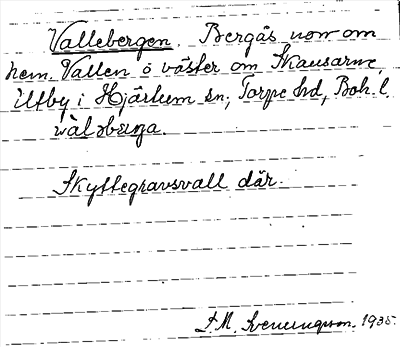 Vallebergen. Bergås norr om
hem. Vallen o väster om Skausarne
i Utby i Hjärtum sn, Torpe hd, Boh. l.
Skyttegravsvall där.
J. M. Svenungsson. 1935.